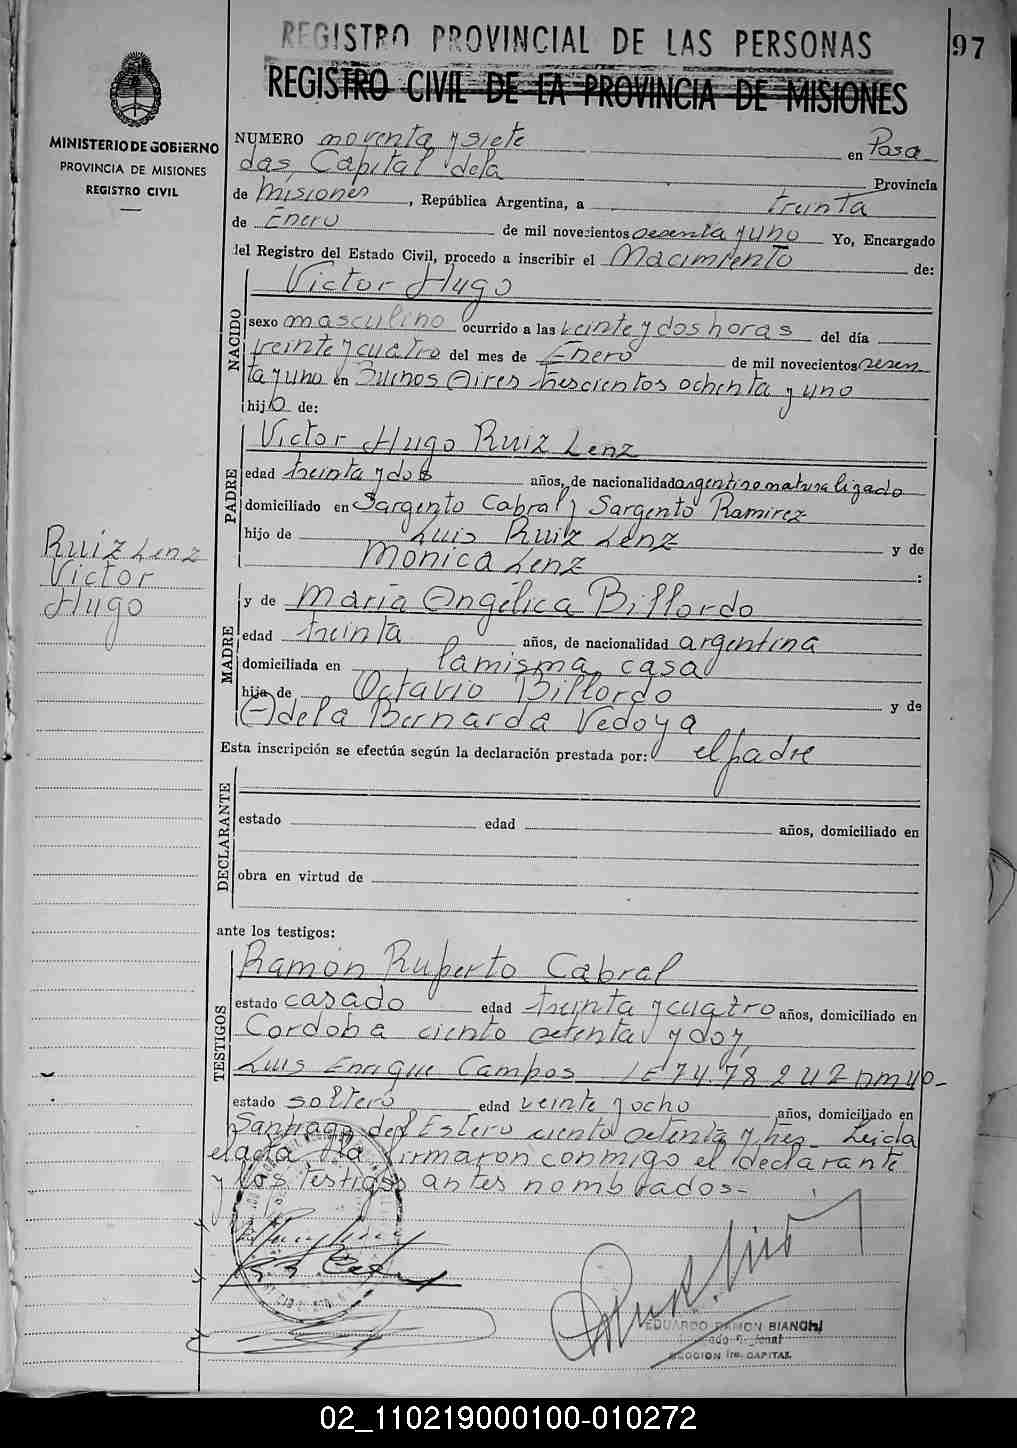 REGISTRO PROVINCIAL DE LAS PERSONAS
97
REGISTRO CIVIL DE LA PROVINCIA DE MISIONES
MINISTERIO DE GOBIERNO
PROVINCIA DE MISIONES
REGISTRO CIVIL
NUMERO noventa y siete en Posa
das, Capital dela Provincia
de Misiones, República Argentina, a treinta
de Enero de mil novecientos sesenta y uno Yo, Encargado
del Registro del Estado Civil, procedo a inscribir el Nacimiento de:
NACIDO
Victor Hugo
sexo masculino ocurrido a las veinte y dos horas del día
veinte y cuatro del mes de Enero de mil novecientos sesen
ta y uno en Buenos Aires trescientos ochenta y uno
hijo de:
PADRE
Victor Hugo Ruiz Lenz
edad treinta y dos años, de nacionalidad argentino naturalizado
domiciliado en Sargento Cabral y Sargento Ramirez
hijo de Luis Ruiz Lenz y de
Monica Lenz :
Ruiz Lenz
Victor
Hugo
MADRE
y de Maria Angélica Billordo
edad treinta años, de nacionalidad argentina
domiciliada en la misma casa
hija de Octavio Billordo y de
Adela Bernarda Vedoya
Esta inscripción se efectúa según la declaración prestada por: el padre
DECLARANTE
estado edad años, domiciliado en
obra en virtud de
ante los testigos:
TESTIGOS
Ramón Ruperto Cabral
estado casado edad treinta y cuatro años, domiciliado en
Cordoba ciento setenta y dos,
Luis Enrique Campos
estado soltero edad veinte y ocho años, domiciliado en
Santiago del Estero ciento setenta y tres Leida
el acta la firmaron conmigo el declarante
y los testigos antes nombrados-
EDUARDO RAMON BIANCHI
SECCION 1ra. CAPITAL
02_110219000100-010272